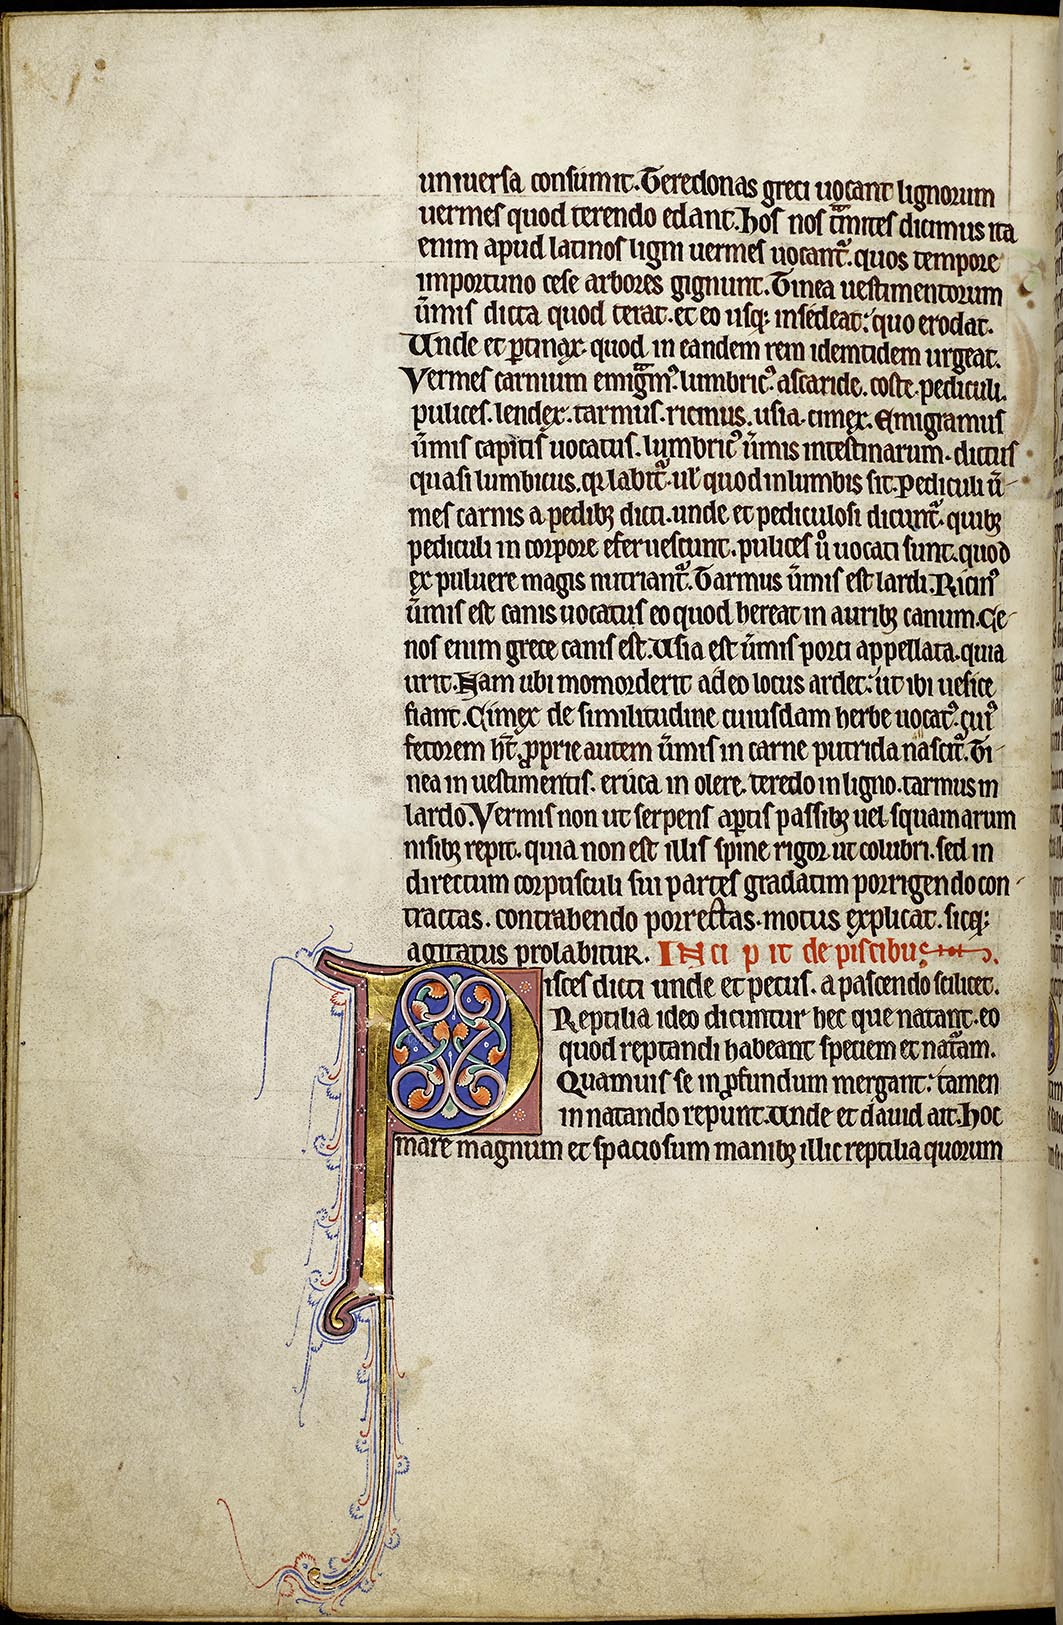 uniuersa consumit. Teredonas greci uocant lignorum
uermes quod terendo edant. Hos nos t̄mites dicimus ita
enim apud latinos ligni uermes uocant᷑. quos tempore
importuno cese arbores gignunt. Tinea uestimentorum
ūmis dicta quod terat. et eo usq; insedeat: quo erodat.
Unde et ꝑtinax. quod in eandem rem idemtidem urgeat.
Vermes carnium emigmꝰ. lumbricꝰ. ascaride. coste. pediculi.
pulices. lendex. tarmus. ricinus. usia. cimex. Emigramus
ūmis capitis uocatus. lumbricꝰ ūmis intestinarum. dictus
quasi lumbicus. qr labit᷑. ul̄ quod in lumbis sit. Pediculi ū-
mes carnis a pedibꝫ dicti. unde et pediculosi dicunt᷑. quibꝫ
pediculi in corpore eferuescunt. pulices uͦ uocati sunt. quod
ex puluere magis nutriant᷑. Tarmus ūmis est lardi. Ricinꝰ
ūmis est canis uocatus eo quod hereat in auribꝫ canum. Ce-
nos enim grece canis est. Usia est ūmis porci appellata. quia
urit. Nam ubi momorderit adeo locus ardet: ut ibi uesice
fiant. Cimex de similitudine cuiusdam herbe uocatꝰ. cuiꝰ
fetorem ht̄. ꝓprie autem ūmis in carne putrida nascit᷑. Ti-
nea in uestimentis. eruca in olere. teredo in ligno. tarmus in
lardo. Vermis non ut serpens aꝑtis passibꝫ uel squamarum
nisibꝫ repit. quia non est illis spine rigor ut colubri. sed in
directum corpusculi sui partes gradatim porrigendo con-
tractas. contrahendo porrectas. motus explicat. sicq;
agitatus prolabitur. INCIPIT de piscibus.
Pisces dicti unde et pecus. a pascendo scilicet.
Reptilia ideo dicuntur hec que natant. eo
quod reptandi habeant speciem et nat᷑am.
Quamuis se in ꝓfundum mergant: tamen
in natando repunt. Unde et dauid ait. Hoc
mare magnum et spaciosum manibꝫ illic reptilia quorum